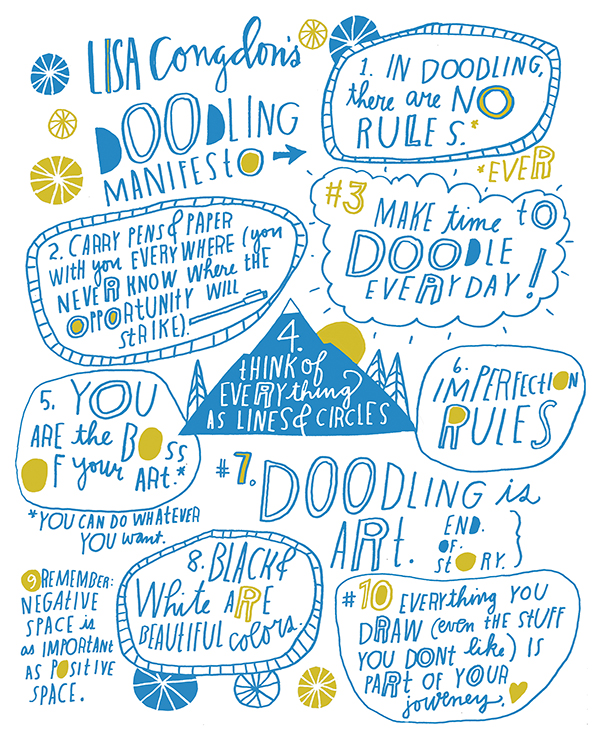 LISA Congdon's
DOODLING
MANIFESTO
1. IN DOODLING,
there are NO
RULES.*
*EVER
2. CARRY PENS & PAPER
WITH you EVERYWHERE (you
NEVER KNOW WHERE THE
OPPORTUNITY WILL
STRIKE).
#3 MAKE time tO
DOODLE
EVERYDAY!
4.
tHINK of
EVERYthing
AS LINES & CIRCLES
5. YOU
ARE the BOSS
OF your ART.*
*YOU CAN DO WHATEVER
YOU want.
6.
IMPERFECTION
RULES
#7. DOODLING is
ART. END.
OF.
StORY.
8. BLACK &
White ARE
BEAUTIFUL colors.
9 REMEMBER:
NEGATIVE
SPACE is
as IMPORTANT
AS POSITIVE
SPACE.
#10 EVERYthing YOU
DRAW (even THE STUFF
YOU DONT like) IS
PART OF YOUR
journey.